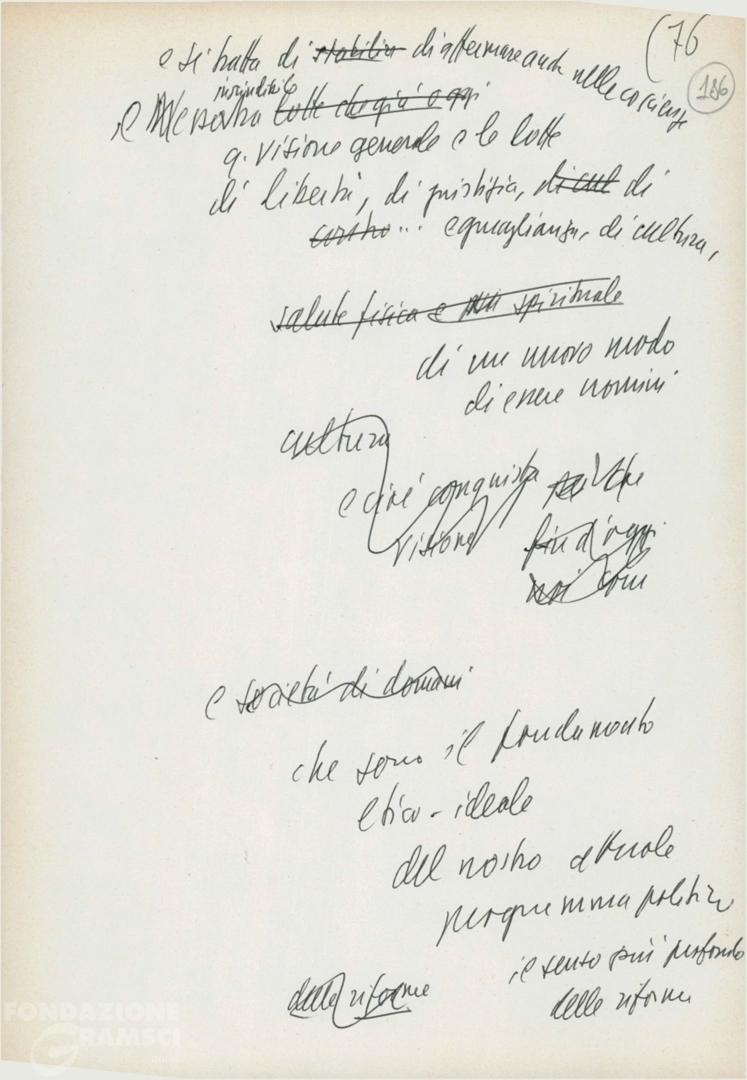 (76
186
e si tratta di stabilire di affermare anche nelle coscienze
inscindibile
il nesso tra lotte che già oggi
q. visione generale e le lotte
di libertà, di giustizia, di cul di
contro... eguaglianza, di cultura,
salute fisica e spirituale
di un nuovo modo
di essere uomini
cultura
e cioè conquista che
visione fin d'oggi
noi com
e società di domani
che sono il fondamento
etico-ideale
del nostro attuale
programma politico
il senso più profondo
delle riforme delle riforme
FONDAZIONE
GRAMSCI